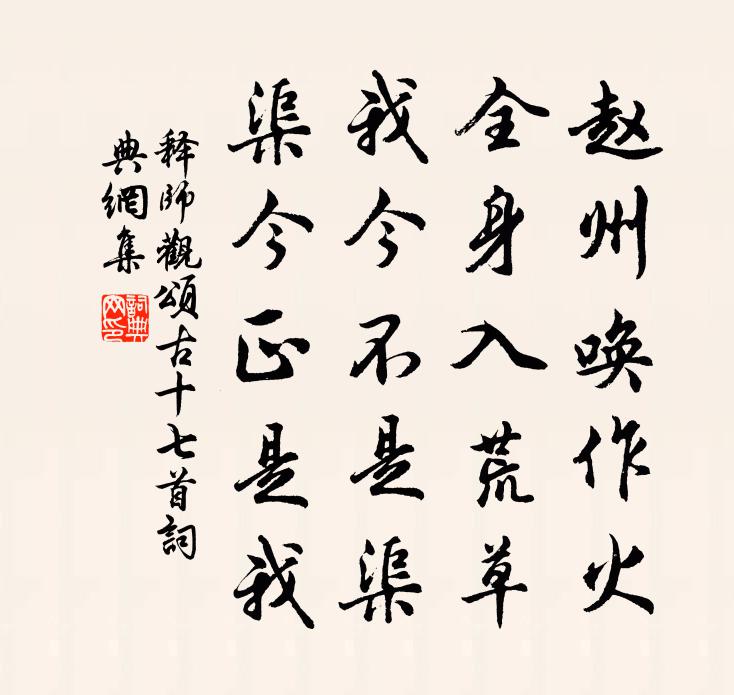 赵州唤作火
全身入荒草
我今不是渠
渠今正是我
释师觀頌古十七首詞
典網集
詞典
网印